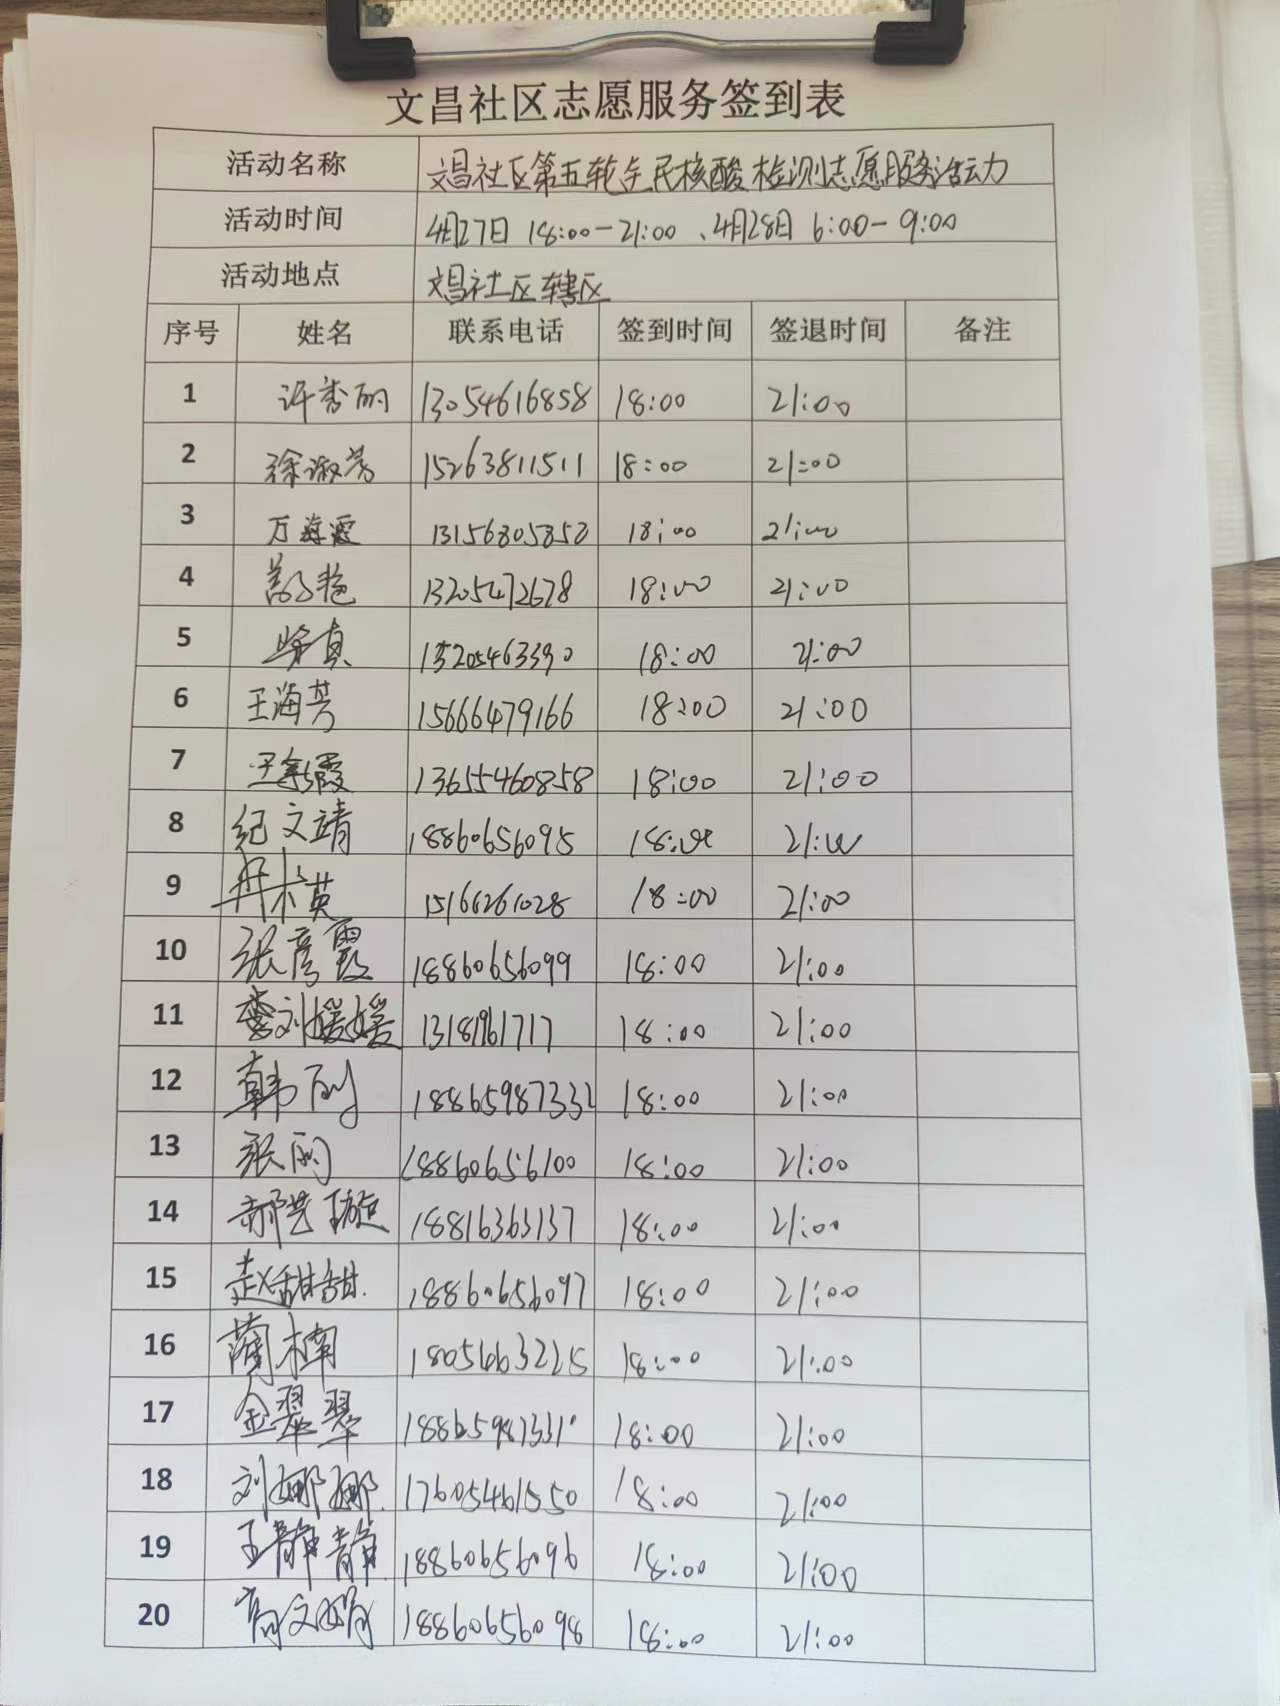 文昌社区志愿服务签到表
活动名称 文昌社区第五轮全民核酸检测志愿服务活动
活动时间 4月27日 18:00-21:00、4月28日 6:00-9:00
活动地点 文昌社区辖区
序号 姓名 联系电话 签到时间 签退时间 备注
1 许秀丽 13054616858 18:00 21:00
2 徐淑芳 15263811511 18:00 21:00
3 万海霞 13156805852 18:00 21:00
4 13205472678 18:00 21:00
5 18:00 21:00
6 王海芳 15666479166 18:00 21:00
7 13655460858 18:00 21:00
8 纪文靖 18860656095 18:00 21:00
9 15166261028 18:00 21:00
10 张彦霞 18860656099 18:00 21:00
11 刘媛媛 13181961717 18:00 21:00
12 韩丽 18865987332 18:00 21:00
13 张丽 18860656100 18:00 21:00
14 郝艺璇 18816363137 18:00 21:00
15 赵甜甜 18860656097 18:00 21:00
16 蔺楠 18056663225 18:00 21:00
17 金翠翠 18865987331 18:00 21:00
18 刘娜娜 17605461550 18:00 21:00
19 王静静 18860656096 18:00 21:00
20 高文娟 18860656098 18:00 21:00